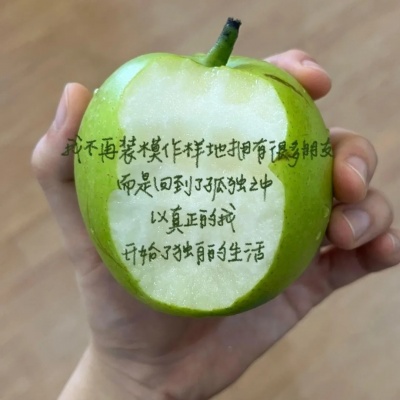 我不再装模作样地拥有很多朋友
而是回到了孤独之中
以真正的我
开始了独自的生活